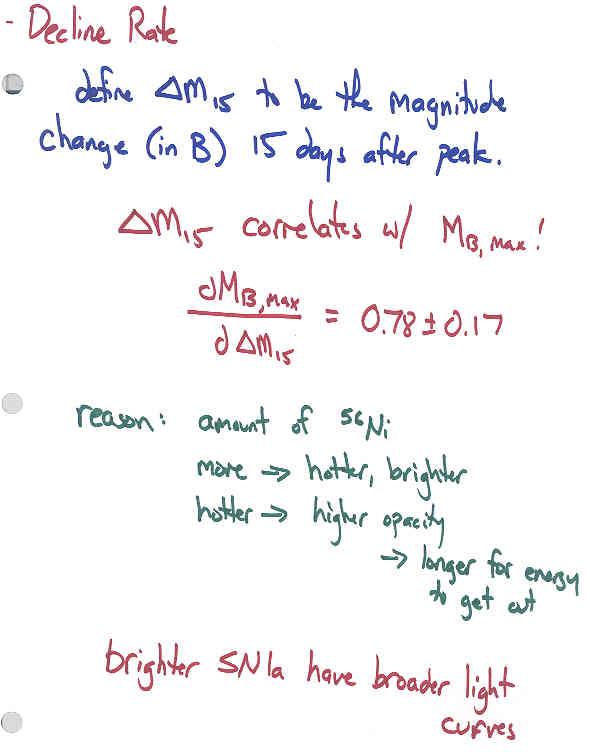 - Decline Rate
define ΔM15 to be the magnitude
change (in B) 15 days after peak.
ΔM15 correlates w/ MB,max!
dMB,max / dΔM15 = 0.78 ± 0.17
reason: amount of 56Ni
more → hotter, brighter
hotter → higher opacity
→ longer for energy
to get out
brighter SN Ia have broader light
curves